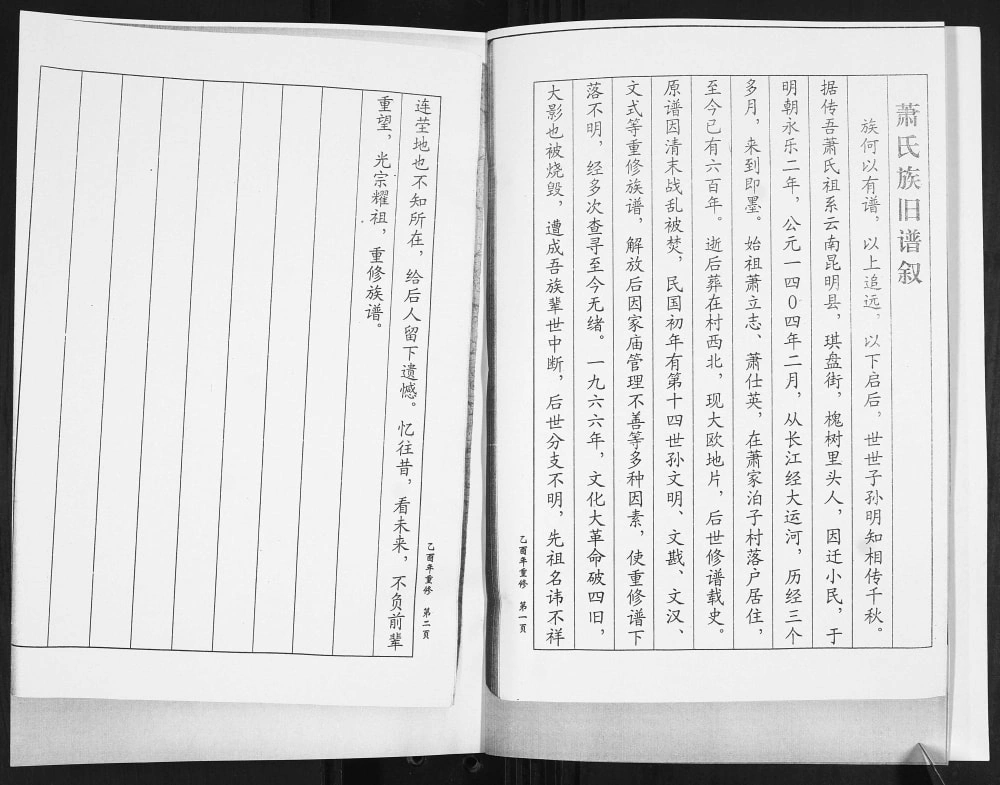 萧氏族旧谱叙
族何以有谱，以上追远，以下启后，世世子孙明知相传千秋。
据传吾萧氏祖系云南昆明县，琪盘街，槐树里头人，因迁小民，于
明朝永乐二年，公元一四0四年二月，从长江经大运河，历经三个
多月，来到即墨。始祖萧立志、萧仕英，在萧家泊子村落户居住，
至今已有六百年。逝后葬在村西北，现大欧地片，后世修谱载史。
原谱因清末战乱被焚，民国初年有第十四世孙文明、文戡、文汉、
文式等重修族谱，解放后因家庙管理不善等多种因素，使重修谱下
落不明，经多次查寻至今无绪。一九六六年，文化大革命破四旧，
大影也被烧毁，遭成吾族辈世中断，后世分支不明，先祖名讳不祥
乙酉年重修 第一頁
连茔地也不知所在，给后人留下遗憾。忆往昔，看未来，不负前辈
重望，光宗耀祖，重修族谱。
乙酉年重修 第二頁